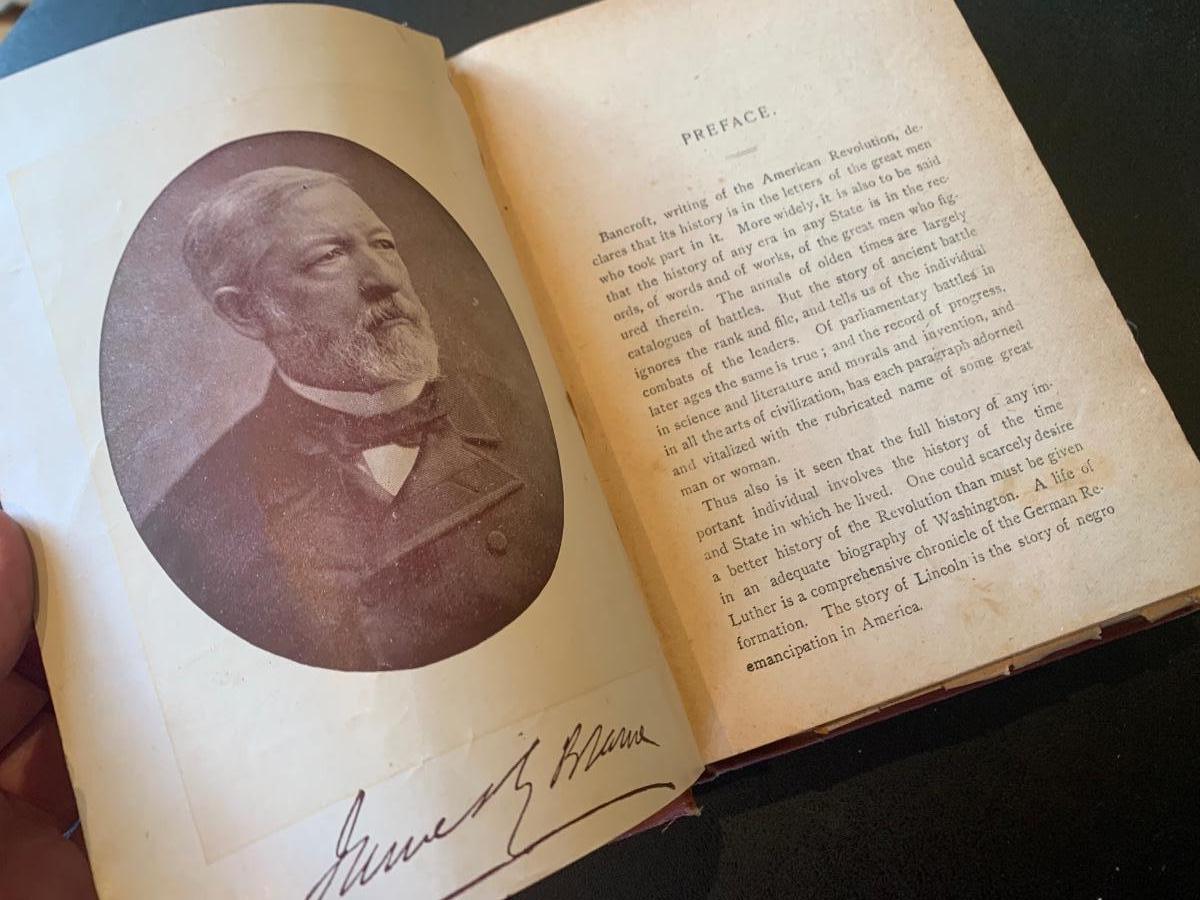 James G Blaine
PREFACE.
Bancroft, writing of the American Revolution, de-
clares that its history is in the letters of the great men
who took part in it. More widely, it is also to be said
that the history of any era in any State is in the rec-
ords, of words and of works, of the great men who fig-
ured therein. The annals of olden times are largely
catalogues of battles. But the story of ancient battle
ignores the rank and file, and tells us of the individual
combats of the leaders. Of parliamentary battles in
later ages the same is true; and the record of progress,
in science and literature and morals and invention, and
in all the arts of civilization, has each paragraph adorned
and vitalized with the rubricated name of some great
man or woman.
Thus also is it seen that the full history of any im-
portant individual involves the history of the time
and State in which he lived. One could scarcely desire
a better history of the Revolution than must be given
in an adequate biography of Washington. A life of
Luther is a comprehensive chronicle of the German Re-
formation. The story of Lincoln is the story of negro
emancipation in America.